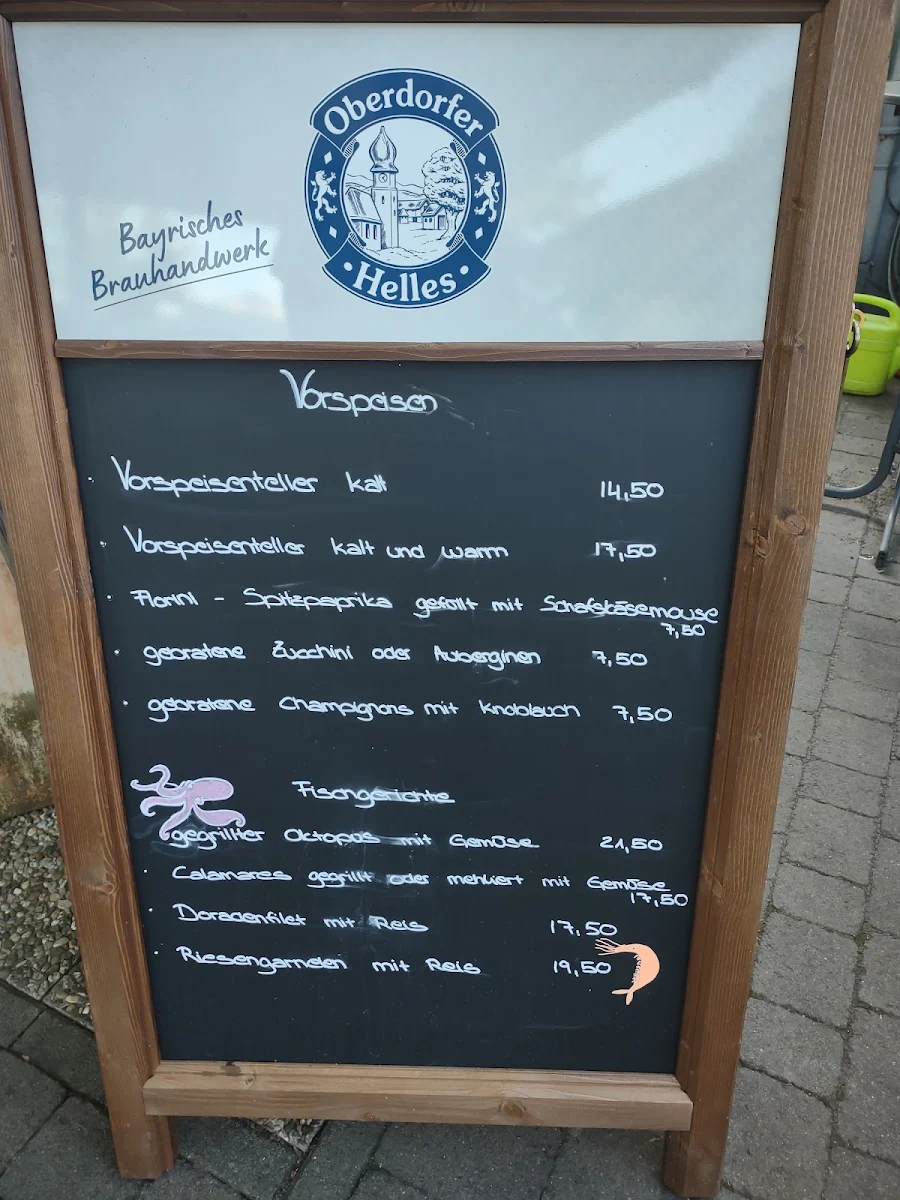 Oberdorfer
Helles
Bayrisches
Brauhandwerk
Vorspeisen
Vorspeisenteller kalt 14,50
Vorspeisenteller kalt und warm 17,50
Florini - Spitzpaprika gefüllt mit Schafskäsemouse
7,50
gebratene Zucchini oder Auberginen 7,50
gebratene Champignons mit Knoblauch 7,50
Fischgerichte
gegrillter Octopus mit Gemüse 21,50
Calamares gegrillt oder mehliert mit Gemüse
17,50
Doradenfilet mit Reis 17,50
Riesengarnelen mit Reis 19,50